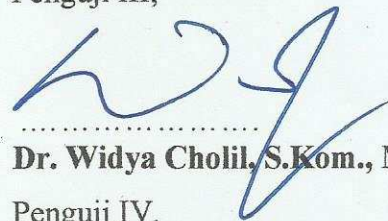 Penguji III,
........................
Dr. Widya Cholil, S.Kom., M
Penguji IV,